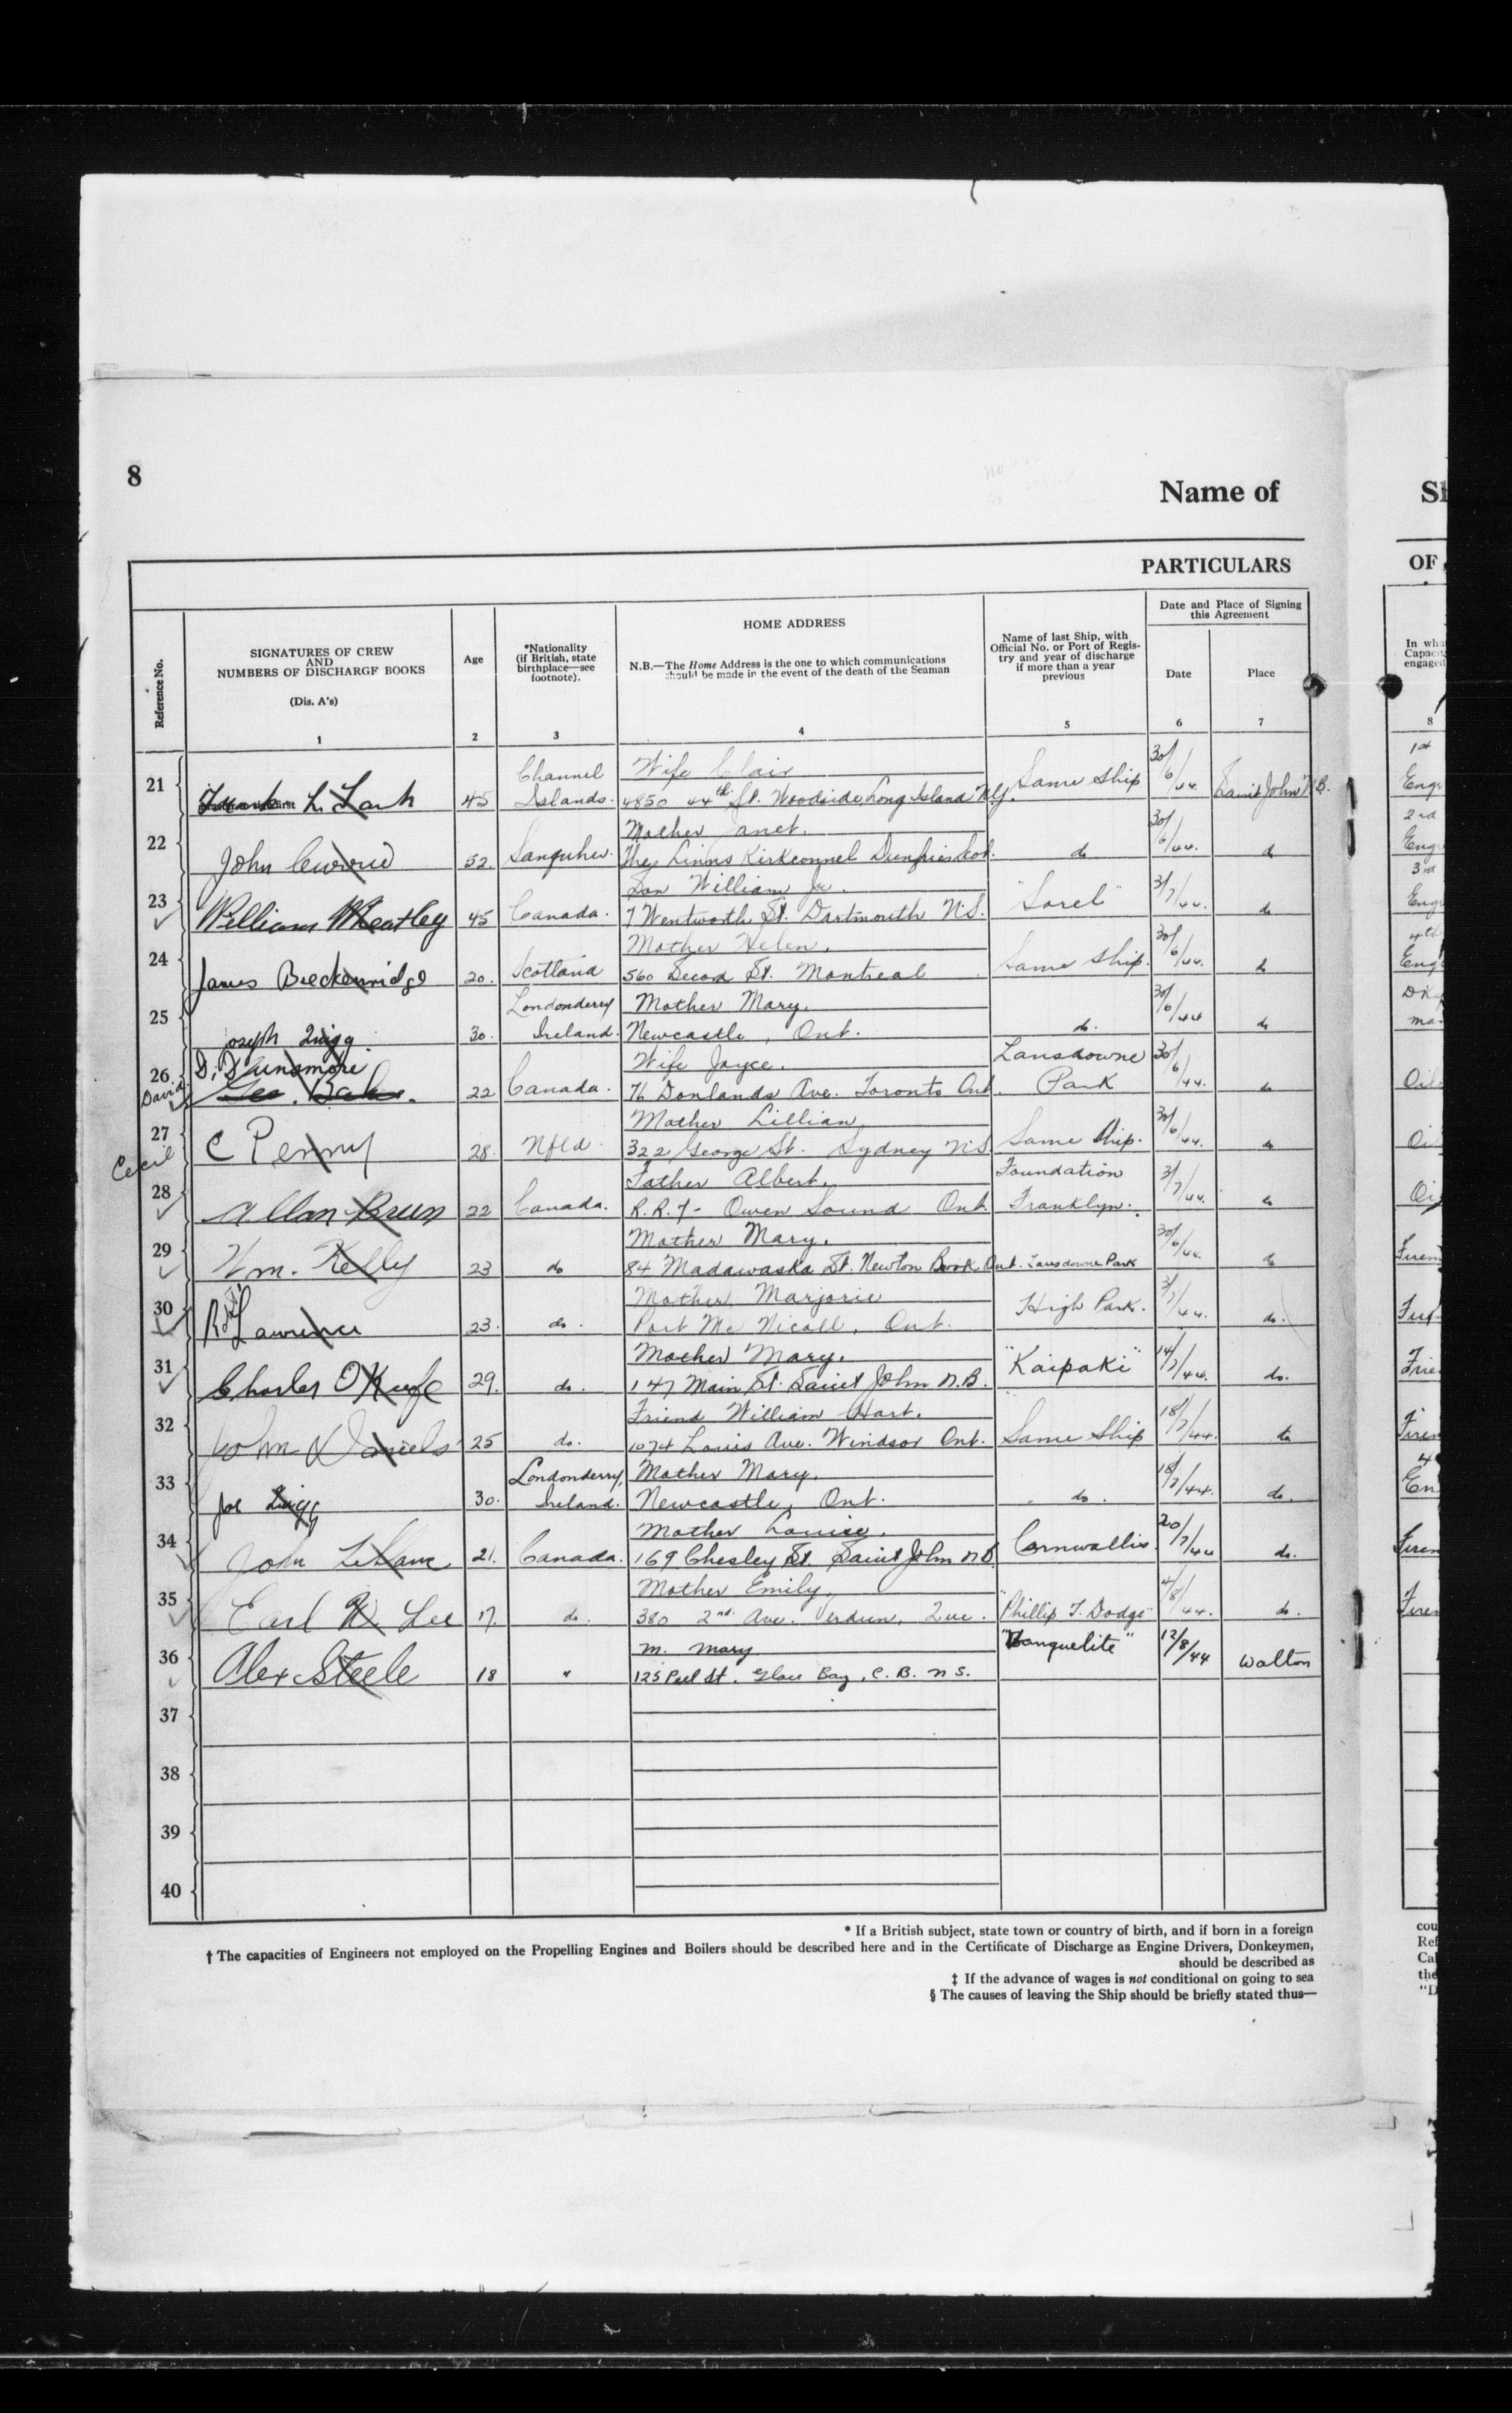 8
Name of
Sh
PARTICULARS
OF
Reference No.
SIGNATURES OF CREW
AND
NUMBERS OF DISCHARGE BOOKS
(Dis. A's)
1
Age
2
*Nationality
(if British, state
birthplace—see
footnote).
3
HOME ADDRESS
N.B.—The Home Address is the one to which communications
should be made in the event of the death of the Seaman
4
Name of last Ship, with
Official No. or Port of Regis-
try and year of discharge
if more than a year
previous
5
Date and Place of Signing
this Agreement
Date
6
Place
7
In wha
Capacity
engaged
8
21 45 Channel Islands. Wife Clair
4850 44th St. Woodside, Long Island N.Y. Same Ship 30/6/44. Saint John N.B. 1st Engr
22 John 52. Sanquher. Mother Janet.
Linns Kirkconnel Dumfries Scot. do 30/6/44. do 2nd Eng.
23 William Wheatley 45 Canada. Son William Jr.
7 Wentworth St. Dartmouth N.S. "Sorel" 3/7/44. do 3rd Eng
24 James Breckenridge 20. Scotland Mother Helen.
560 Second St. Montreal Same Ship. 30/6/44. do 4th Eng
25 Joseph Quigg. 30. Londonderry Ireland. Mother Mary.
Newcastle, Ont. do. 30/6/44 do Dky man
26 David D. Dunsmore
Geo. Baker. 22 Canada. Wife Joyce.
76 Donlands Ave. Toronto Ont. Lansdowne Park 30/6/44. do Oil
27 Cecil C Penny 28. Nfld. Mother Lillian
322 George St. Sydney N.S. Same Ship. 30/6/44. do Oi
28 Allan Breen 22 Canada. Father Albert.
R.R.7 - Owen Sound Ont. Foundation Franklyn. 3/7/44. do Oi
29 Wm. Kelly 23 do Mother Mary.
84 Madawaska St. Newton Brook Ont. Lansdowne Park 30/6/44. do Firem
30 Lawrence 23. do. Mother Marjorie
Port Mc Nicoll, Ont. High Park. 3/7/44. do. Fire
31 Charles O'Keefe 29. do. Mother Mary.
147 Main St. Saint John N.B. "Kaipaki" 14/7/44. do. Fire
32 John Daniels 25 do. Friend William Hart.
1074 Louis Ave. Windsor Ont. Same Ship 18/7/44. do Firem
33 Joe Quigg 30. Londonderry, Ireland. Mother Mary.
Newcastle, Ont. do. 18/7/44. do. 4 En
34 John Leblanc 21. Canada. Mother Louise.
169 Chesley St. Saint John N.B. Cornwallis. 20/7/44 do. Firem
35 Earl Lee 17. do. Mother Emily,
380 2nd Ave. Verdun, Que. "Phillip T. Dodge" 4/8/44. do. Firem
36 Alex Steele 18 " M. Mary
125 Peel St. Glace Bay, C.B. N.S. 12/8/44 Walton
37
38
39
40
* If a British subject, state town or country of birth, and if born in a foreign
† The capacities of Engineers not employed on the Propelling Engines and Boilers should be described here and in the Certificate of Discharge as Engine Drivers, Donkeymen,
should be described as
‡ If the advance of wages is not conditional on going to sea
§ The causes of leaving the Ship should be briefly stated thus—
cou
Ref
Cal
the
"D